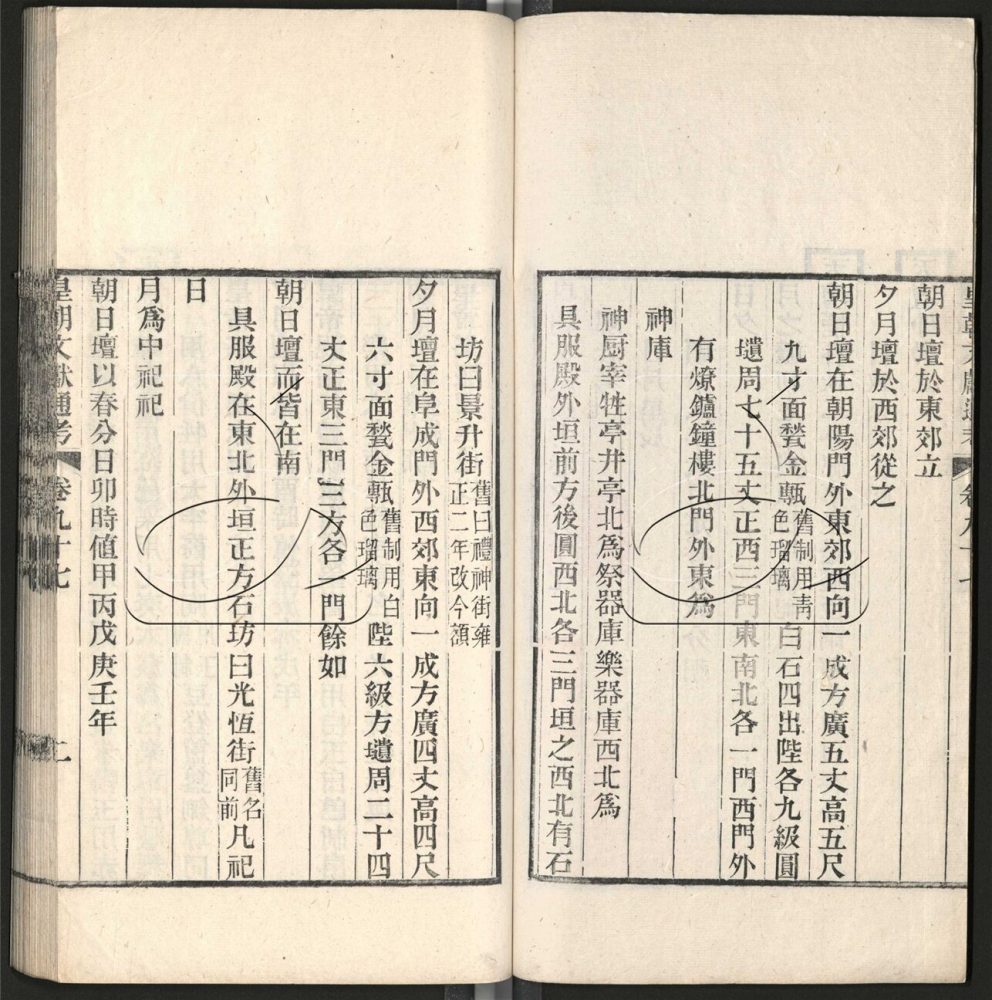 朝日壇於東郊立
夕月壇於西郊從之
朝日壇在朝陽門外東郊西向一成方廣五丈高五尺
九寸面甃金甎舊制用青色瑠璃白石四出陛各九級圓
壝周七十五丈正西三門東南北各一門西門外
有燎鑪鐘樓北門外東爲
神庫
神厨宰牲亭井亭北爲祭器庫樂器庫西北爲
具服殿外垣前方後圓西北各三門垣之西北有石
坊曰景升街舊曰禮神街雍正二年改今額
夕月壇在阜成門外西郊東向一成方廣四丈高四尺
六寸面甃金甎舊制用白色瑠璃陛六級方壝周二十四
丈正東三門三方各一門餘如
朝日壇而皆在南
具服殿在東北外垣正方石坊曰光恆街舊名同前凡祀
日
月爲中祀祀
朝日壇以春分日卯時値甲丙戊庚壬年
皇朝文獻通考 卷九十七 二